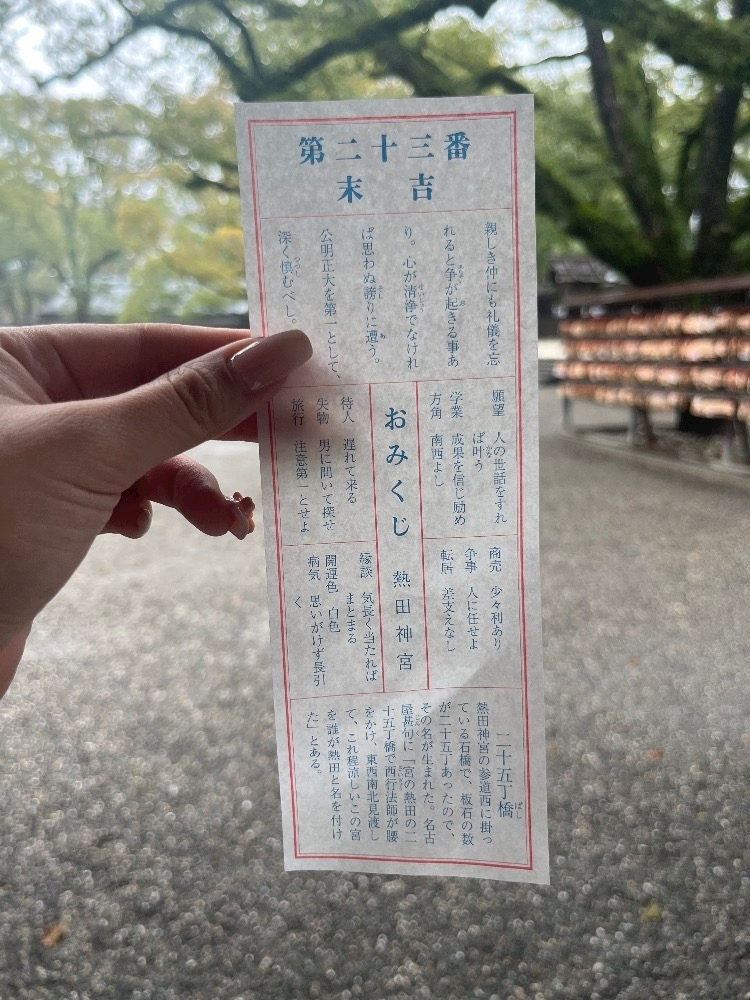 第二十三番
末 吉
親しき仲にも礼儀を忘
れると争が起きる事あ
り。心が清浄でなけれ
ば思わぬ謗りに遭う。
公明正大を第一として、
深く慎むべし。
願望 人の世話をすれ
ば叶う
学業 成果を信じ励め
方角 南西よし
商売 少々利あり
争事 人に任せよ
転居 差支えなし
おみくじ 熱田神宮
待人 遅れて来る
失物 男に問いて探せ
旅行 注意第一とせよ
縁談 気長く当たれば
まとまる
開運色 白色
病気 思いがけず長引
く
二十五丁橋
熱田神宮の参道西に掛っ
ている石橋で、板石の数
が二十五丁あったので、
その名が生まれた。名古
屋甚句に「宮の熱田の二
十五丁橋で西行法師が腰
をかけ、東西南北見渡し
て、これ程涼しいこの宮
を誰が熱田と名を付け
た」とある。